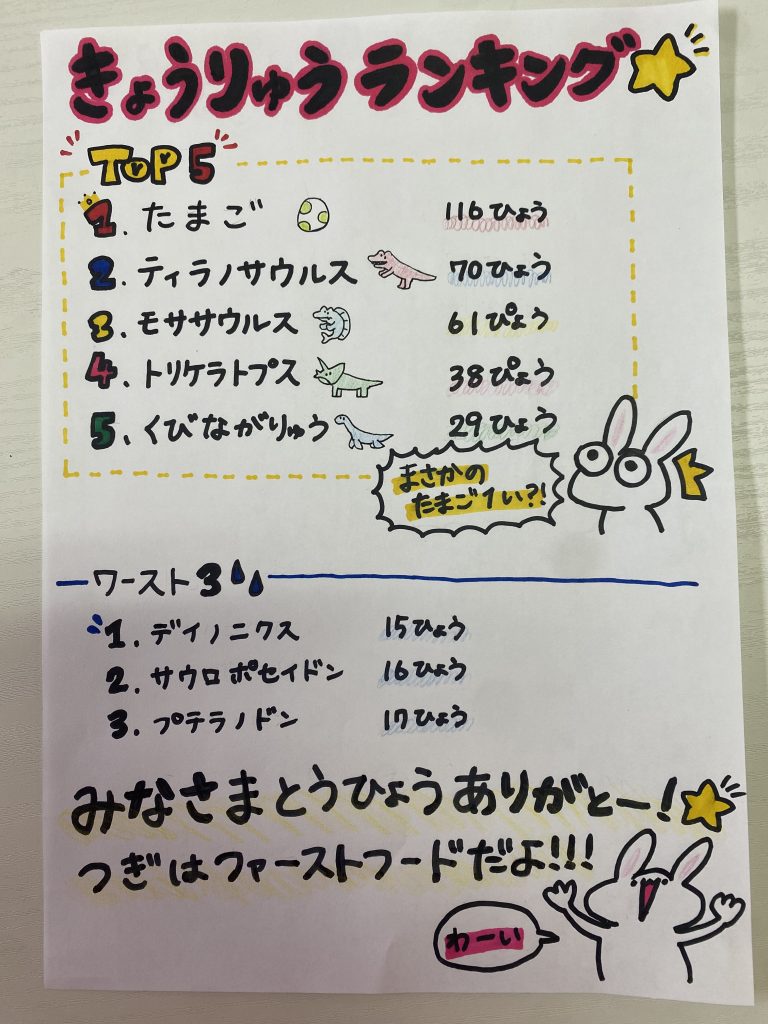 きょうりゅうランキング
TOP 5
1. たまご 116ひょう
2. ティラノサウルス 70ひょう
3. モササウルス 61ぴょう
4. トリケラトプス 38ぴょう
5. くびながりゅう 29ひょう
まさかの
たまご1い?!
ワースト3
1. デイノニクス 15ひょう
2. サウロポセイドン 16ひょう
3. プテラノドン 17ひょう
みなさまとうひょうありがとー!
つぎはファーストフードだよ!!!
わーい